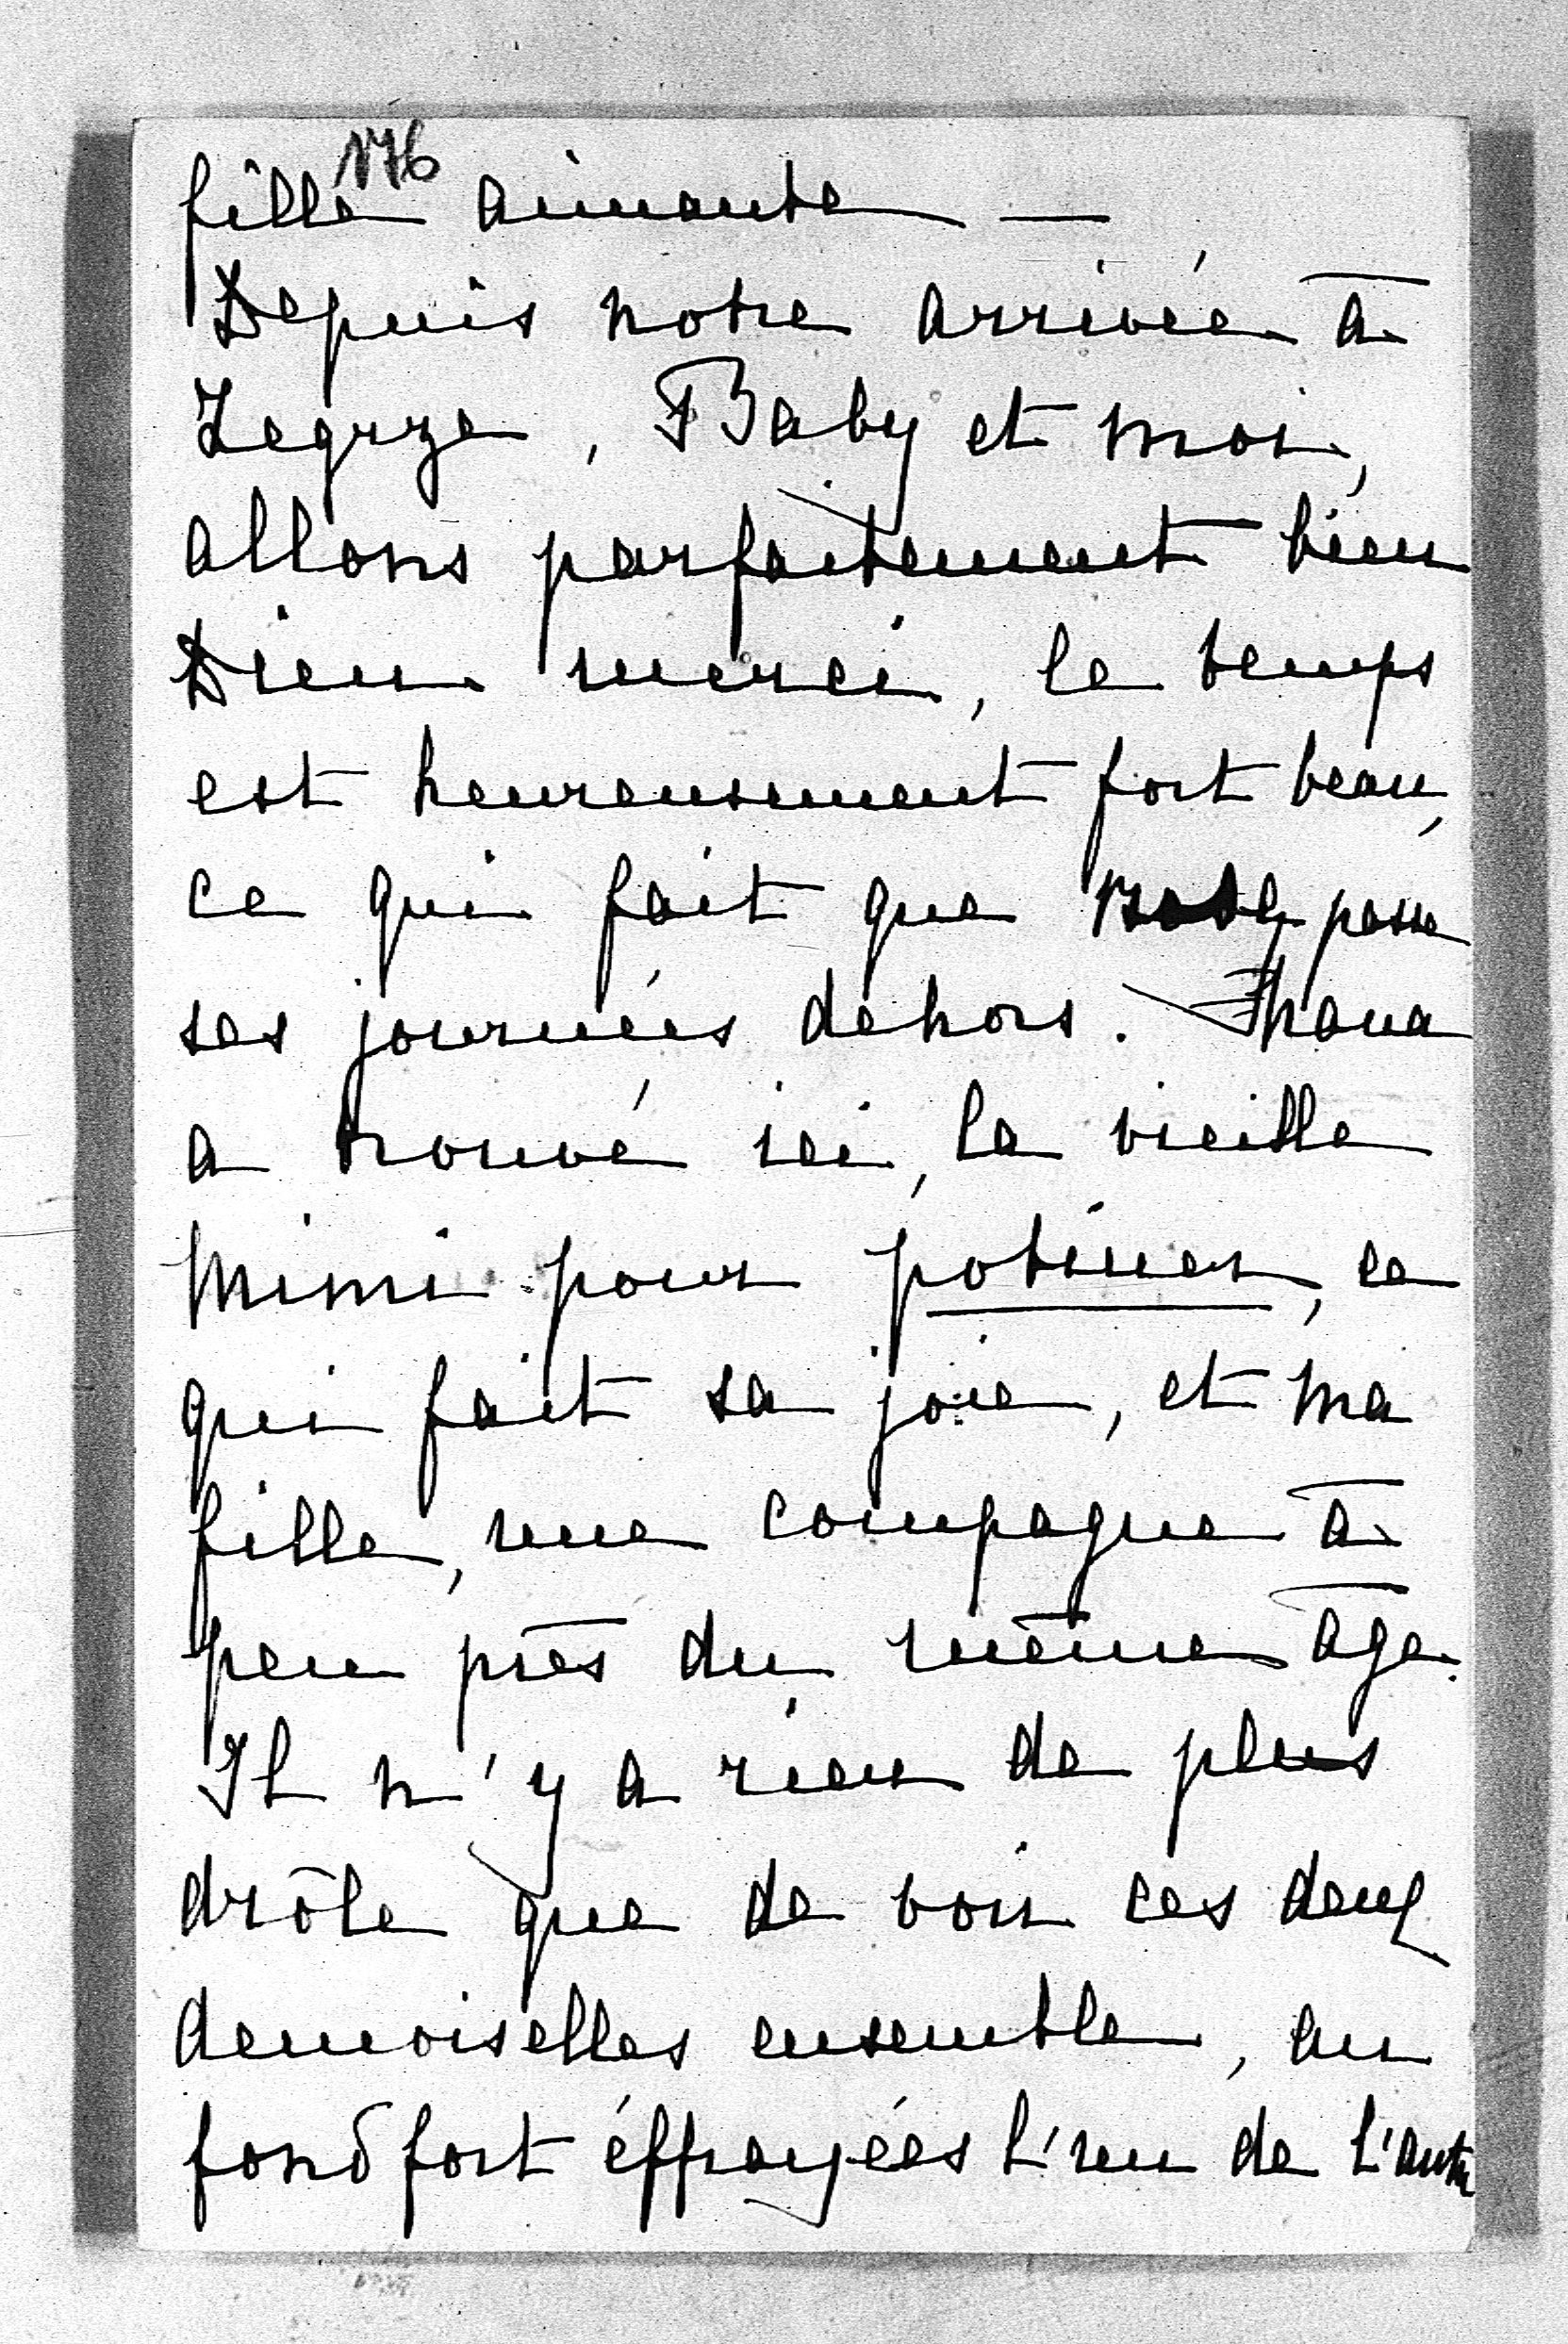 176
fille aimante —
Depuis notre arrivée à
Zegrze, Baby et moi,
allons parfaitement bien
Dieu merci, le temps
est heureusement fort beau,
ce qui fait que passe
ses journées dehors.
a trouvé ici, la vieille
Mimi pour potiner, ce
qui fait sa joie, et ma
fille, une compagne à
peu près du même âge.
Il n'y a rien de plus
drôle que de voir ces deux
demoiselles ensemble, au
fond fort éffrayées l'un de l'autre